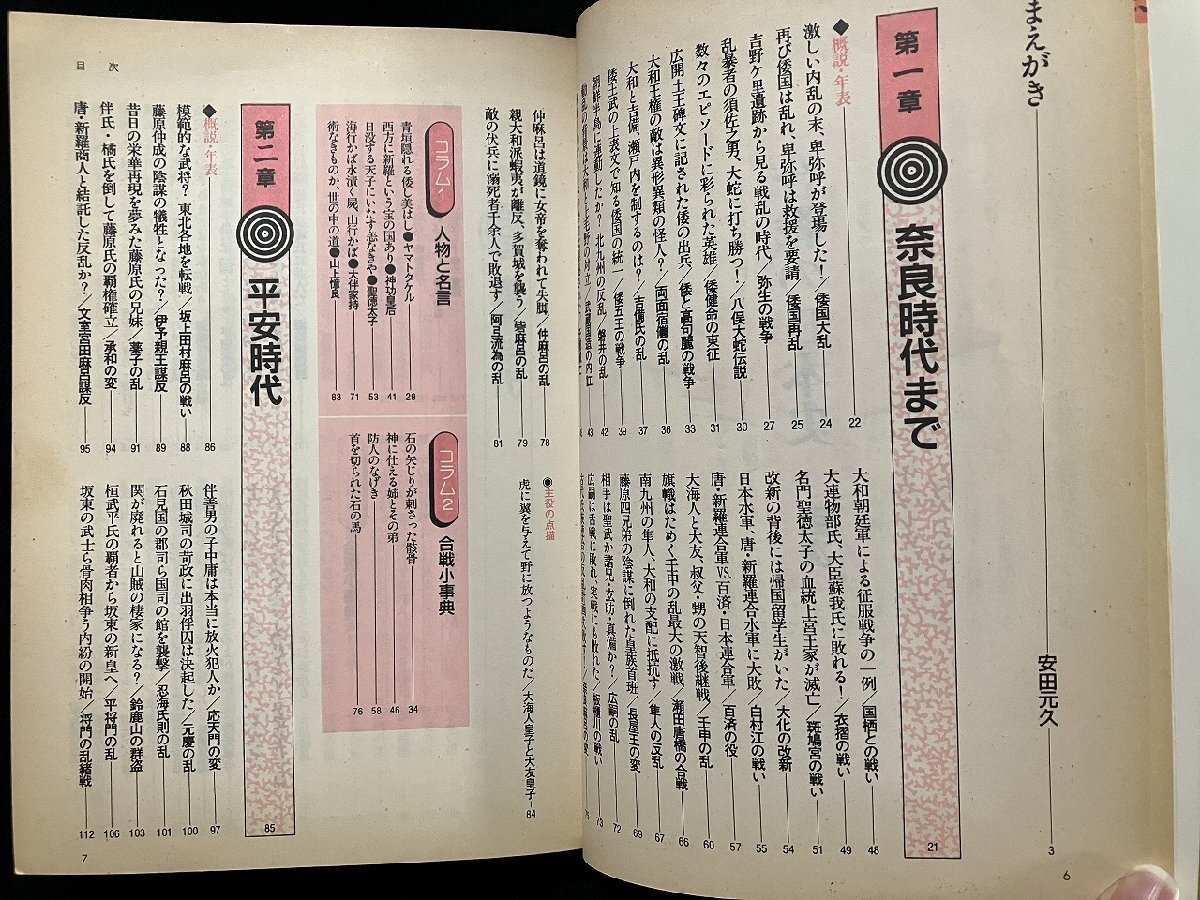 まえがき 安田元久 3
第一章 奈良時代まで 21
◆概説・年表 22
激しい内乱の末、卑弥呼が登場した!/倭国大乱 24
再び倭国は乱れ、卑弥呼は救援を要請/倭国再乱 25
吉野ケ里遺跡から見る戦乱の時代/弥生の戦争 27
乱暴者の須佐之男、大蛇に打ち勝つ!/八俣大蛇伝説 30
数々のエピソードに彩られた英雄/倭健命の東征 31
広開土王碑文に記された倭の出兵/倭と高句麗の戦争 33
大和王権の敵は異形異類の怪人?/両面宿儺の乱 36
大和と吉備、瀬戸内を制するのは?/吉備氏の乱 37
倭王武の上表文で知る倭国の統一/倭五王の戦争 39
朝鮮半島に連動したか?北九州の反乱/磐井の乱 42
大和朝廷軍による征服戦争の一例/国栖との戦い 48
大連物部氏、大臣蘇我氏に敗れる!/衣摺の戦い 49
名門聖徳太子の血統上宮王家が滅亡/斑鳩宮の戦い 51
改新の背後には帰国留学生がいた/大化の改新 54
日本水軍、唐・新羅連合水軍に大敗/白村江の戦い 55
唐・新羅連合軍VS.百済・日本連合軍/百済の役 57
大海人と大友、叔父・甥の天智後継戦/壬申の乱 60
旗幟はためく壬申の乱最大の激戦/瀬田唐橋の合戦 66
南九州の隼人、大和の支配に抵抗す/隼人の反乱 67
藤原四兄弟の陰謀に倒れた皇族首班/長屋王の変 69
相手は聖武か諸兄・玄昉・真備か?/広嗣の乱 72
広嗣は活戦に敗れ、実戦にも敗れた/板櫃川の戦い 73
6
仲麻呂は道鏡に女帝を奪われて失脚/仲麻呂の乱 78
親大和派蝦夷が離反、多賀城を襲う/呰麻呂の乱 79
敵の伏兵に溺死者千余人で敗退す/阿弖流為の乱 81
●主役の点描
虎に翼を与えて野に放つようなものだ/大海人皇子と大友皇子 84
コラム1 人物と名言
青垣隠れる倭し美はし●ヤマトタケル 29
西方に新羅という宝の国あり●神功皇后 41
日没する天子にいたす恙なきや●聖徳太子 53
海行かば水漬く屍、山行かば●大伴家持 71
術なきものか、世の中の道●山上憶良 83
コラム2 合戦小事典
石の矢じりが刺さった骸骨 34
神に仕える姉とその弟 46
防人のなげき 58
首を切られた石の馬 76
第二章 平安時代 85
◆概説・年表 86
模範的な武将?東北各地を転戦/坂上田村麻呂の戦い 88
藤原仲成の陰謀の犠牲となった?/伊予親王謀反 89
昔日の栄華再現を夢みた藤原氏の兄妹/薬子の乱 91
伴氏・橘氏を倒して藤原氏の覇権確立/承和の変 94
唐・新羅商人と結託した反乱か?/文室宮田麻呂謀反 95
伴善男の子中庸は本当に放火犯人か/応天門の変 97
秋田城司の苛政に出羽俘囚は決起した/元慶の乱 100
石見国の郡司ら国司の館を襲撃/忍海氏則の乱 101
関が廃れると山賊の棲家になる?/鈴鹿山の群盗 103
桓武平氏の覇者から坂東の新皇へ/平将門の乱 106
坂東の武士ら骨肉相争う内紛の開始/将門の乱緒戦 112
目次
7